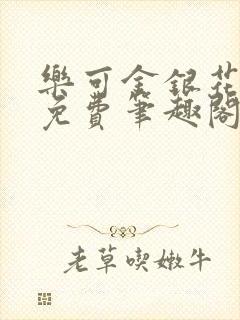 樂可金銀花
免費筆趣閣
老草喫嫩牛